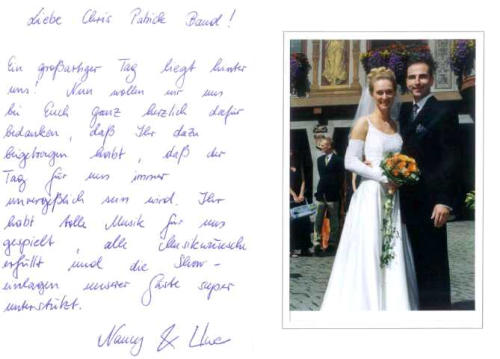 Liebe Chris Patrick Band!
Ein großartiger Tag liegt hinter
uns! Nun wollen wir uns
bei Euch ganz herzlich dafür
bedanken, daß Ihr dazu
beigetragen habt, daß der
Tag für uns immer
unvergeßlich sein wird. Ihr
habt tolle Musik für uns
gespielt, alle Musikwünsche
erfüllt und die Show-
einlagen unserer Gäste super
unterstützt.
Nancy & Uwe